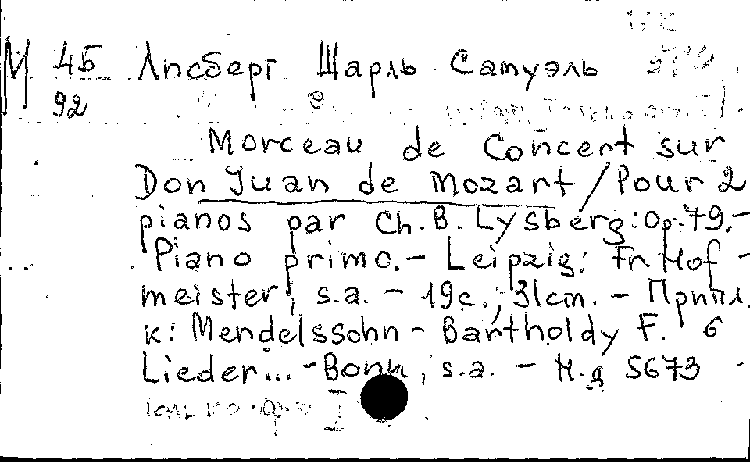 М 45 Лисберг Шарль Самуэль
92
Morceau de Concert sur
Don Juan de Mozart / Pour 2
pianos par Ch. B. Lysberg: Op. 79.-
Piano primo. - Leipzig: Fr. Hof-
meister, s.a. - 19с.; 31cm. - Припл.
к: Mendelssohn-Bartholdy F. 6
Lieder... - Bonn, s.a. - Н.д 5673